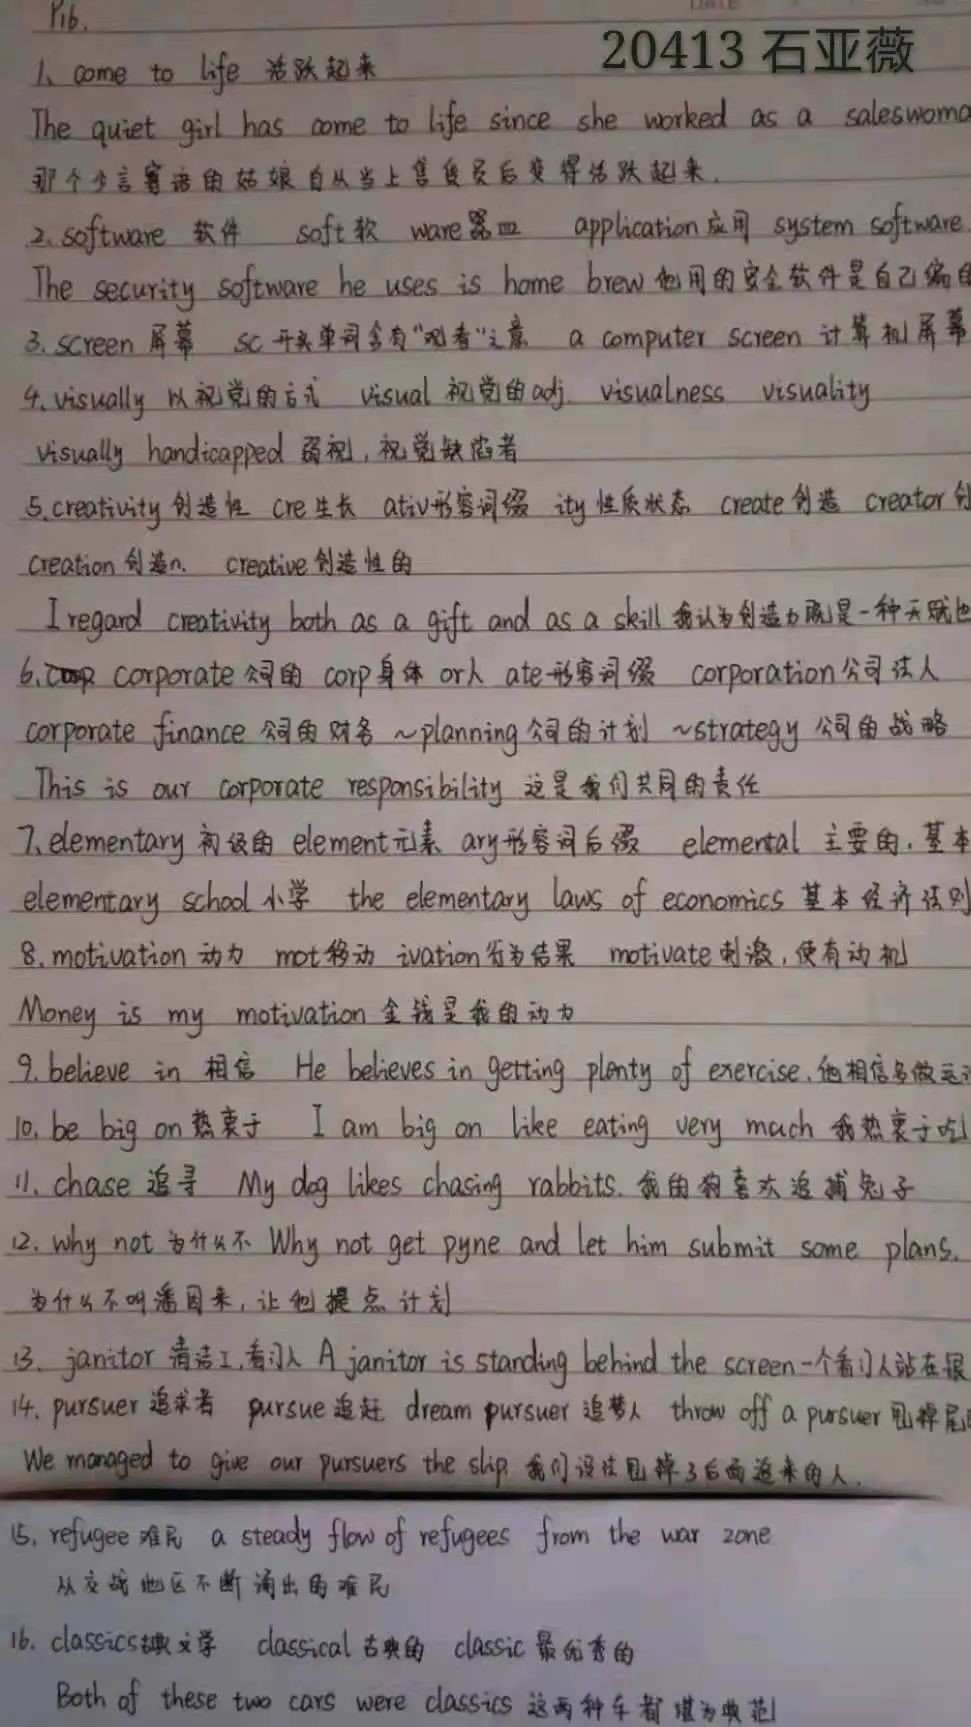 P16.
20413 石亚薇
1、come to life 活跃起来
The quiet girl has come to life since she worked as a saleswoma
那个少言寡语的姑娘自从当上售货员后变得活跃起来.
2. software 软件 soft软 ware器皿 application应用 system software
The security software he uses is home brew 他用的安全软件是自己编的
3. screen 屏幕 sc开头单词含有"观看"之意 a computer screen 计算机屏幕
4. visually 以视觉的方式 visual 视觉的adj. visualness visuality
visually handicapped 弱视,视觉缺陷者
5.creativity 创造性 cre生长 ativ形容词缀 ity性质状态 create创造 creator创
creation 创造n. creative创造性的
I regard creativity both as a gift and as a skill 我认为创造力既是一种天赋也
6. corporate 公司的 corp身体 or人 ate形容词缀 corporation公司法人
corporate finance 公司的财务 ~planning公司的计划 ~strategy 公司的战略
This is our corporate responsibility 这是我们共同的责任
7、elementary 初级的 element元素 ary形容词后缀 elemental 主要的,基本
elementary school小学 the elementary laws of economics 基本经济法则
8、motivation 动力 mot移动 ivation行为结果 motivate刺激,使有动机
Money is my motivation 金钱是我的动力
9. believe in 相信 He believes in getting plenty of exercise.他相信多做运
10、be big on热衷于 I am big on like eating very much 我热衷于吃
11、chase 追寻 My dog likes chasing rabbits. 我的狗喜欢追捕兔子
12、why not 为什么不 Why not get pyne and let him submit some plans.
为什么不叫潘因来,让他提点计划
13、janitor 清洁工,看门人 A janitor is standing behind the screen一个看门人站在
14、pursuer 追求者 pursue追赶 dream pursuer 追梦人 throw off a pursuer 甩掉尾
We managed to give our pursuers the slip 我们设法甩掉了后面追来的人.
15、refugee难民 a steady flow of refugees from the war zone
从交战地区不断涌出的难民
16. classics古典文学 classical 古典的 classic 最优秀的
Both of these two cars were classics 这两种车都堪为典范